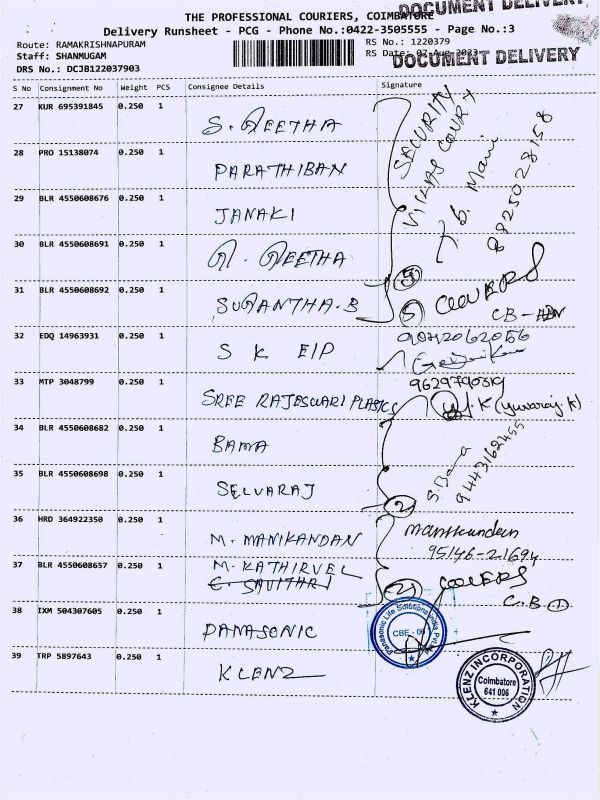 DOCUMENT DELIVERY
THE PROFESSIONAL COURIERS, COIMBATORE
Delivery Runsheet - PCG - Phone No.:0422-3505555 - Page No.:3
Route: RAMAKRISHNAPURAM
RS No.: 1220379
Staff: SHANMUGAM
RS Date: 07-Aug-2023
DOCUMENT DELIVERY
DRS No.: DCJB122037903
S No Consignment No Weight PCS Consignee Details Signature
27 KUR 695391845 0.250 1 S. GEETHA
SECURITY
28 PRO 15138074 0.250 1 PARATHIBAN
COURT
Mani
8825028158
29 BLR 4550608676 0.250 1 JANAKI
30 BLR 4550608691 0.250 1 GEETHA
5
31 BLR 4550608692 0.250 1 SUGANTHA.B
5 COVERS
32 EDQ 14963931 0.250 1 S K EIP
9042062056
33 MTP 3048799 0.250 1 SREE RAJESWARI PLASTICS
9629790319
K (yuvaraj.K)
34 BLR 4550608682 0.250 1 BAMA
S. Bama
9443162455
35 BLR 4550608698 0.250 1 SELVARAJ
2
36 HRD 364922350 0.250 1 M. MANIKANDAN
95146-21694
37 BLR 4550608657 0.250 1 M. KATHIRVEL
SAVITHRI
2 COVERS
38 IXM 504307605 0.250 1 PANASONIC
Panasonic Life Solutions India Pvt. Ltd.
CBE - 06
39 TRP 5897643 0.250 1 KLENZ
KLENZ INCORPORATION
Coimbatore
641 006